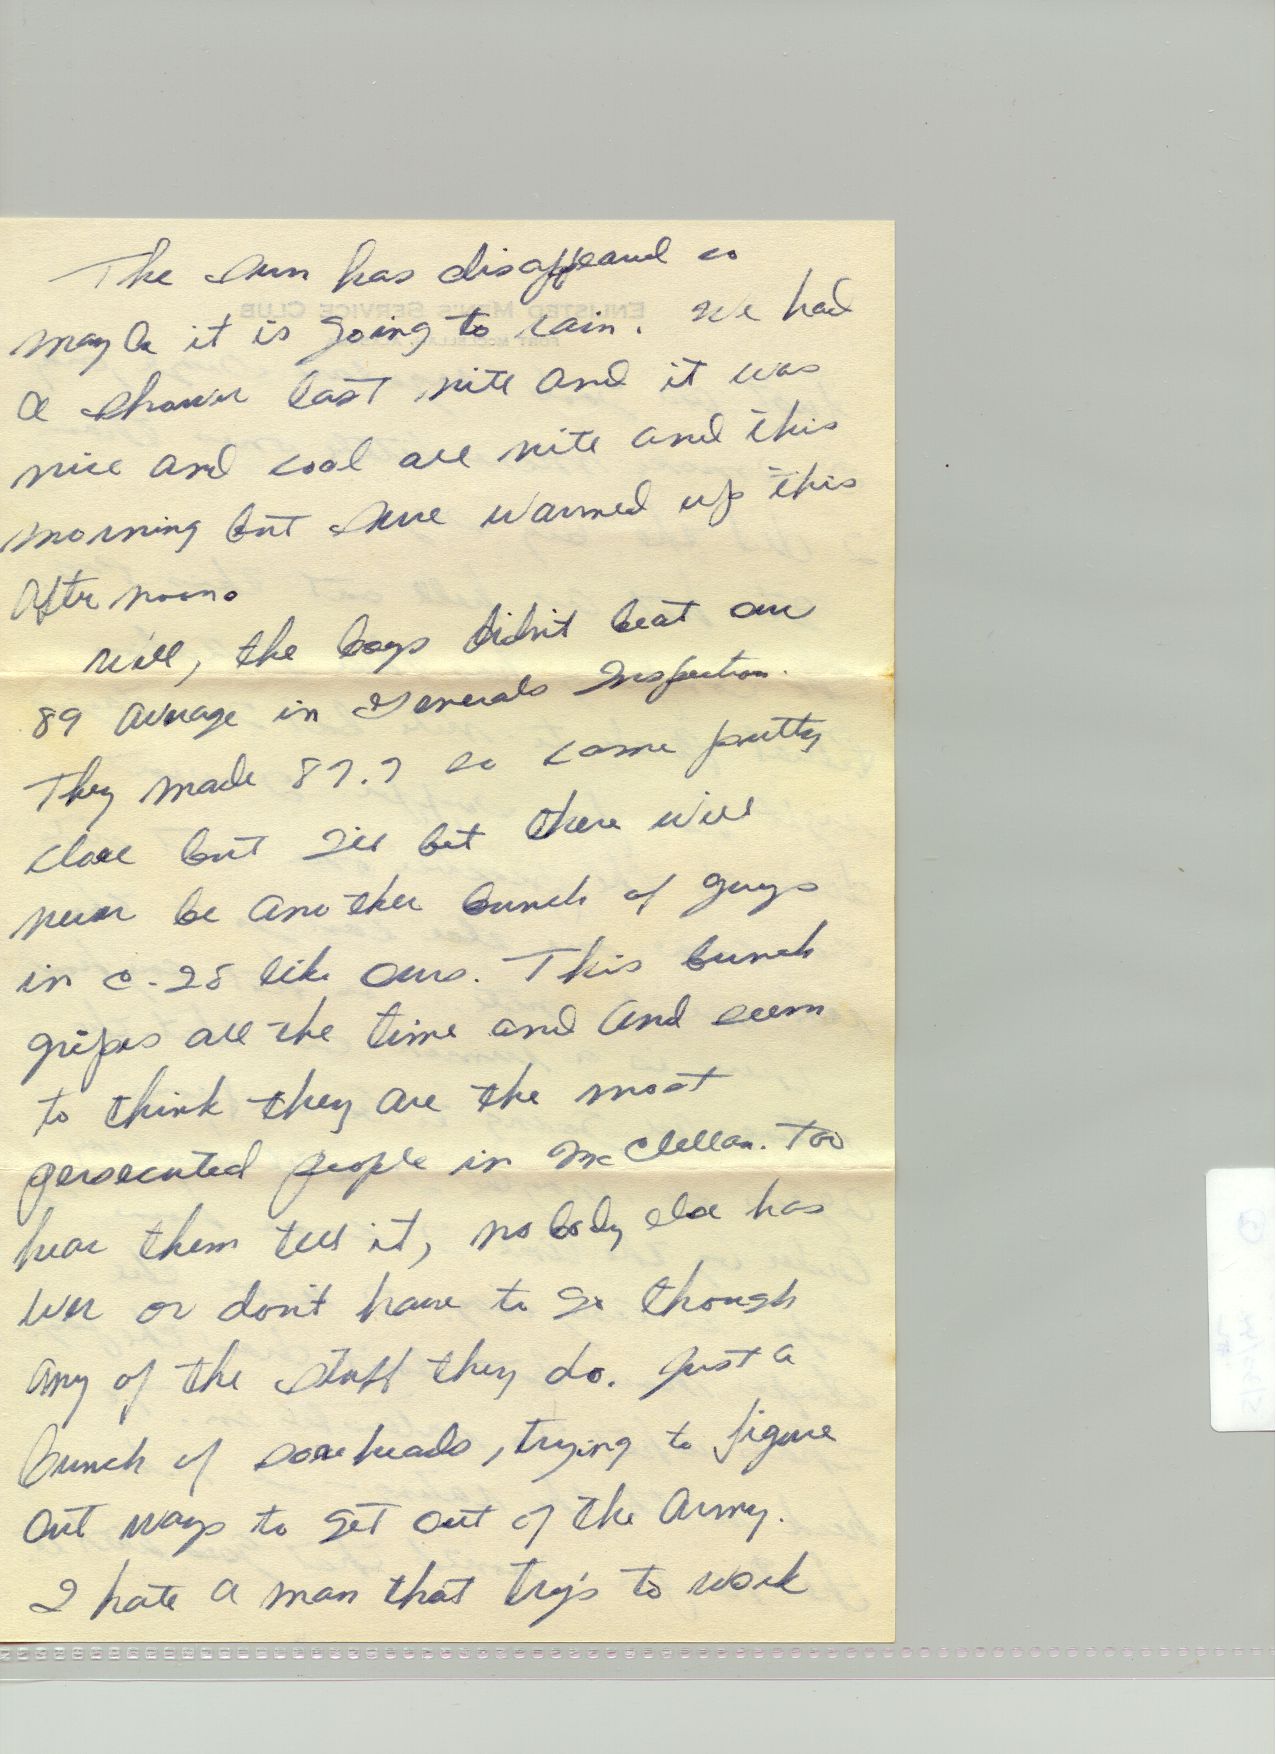 The sun has disappeared so
maybe it is going to rain. We had
a shower last nite and it was
nice and cool all nite and this
morning but sure warmed up this
after noon.
Well, the boys didn't beat our
89 average in Generals Inspection.
They made 87.7 so come pretty
close but I'll bet there will
never be another bunch of guys
in C-28 like ours. This bunch
gripes all the time and and seem
to think they are the most
persecuted people in McClellan. Too
hear them tell it, nobody else has
ever or don't have to go though
any of the stuff they do. Just a
bunch of soreheads, trying to figure
out ways to get out of the army.
I hate a man that try's to work
ENLISTED MEN'S SERVICE CLUB